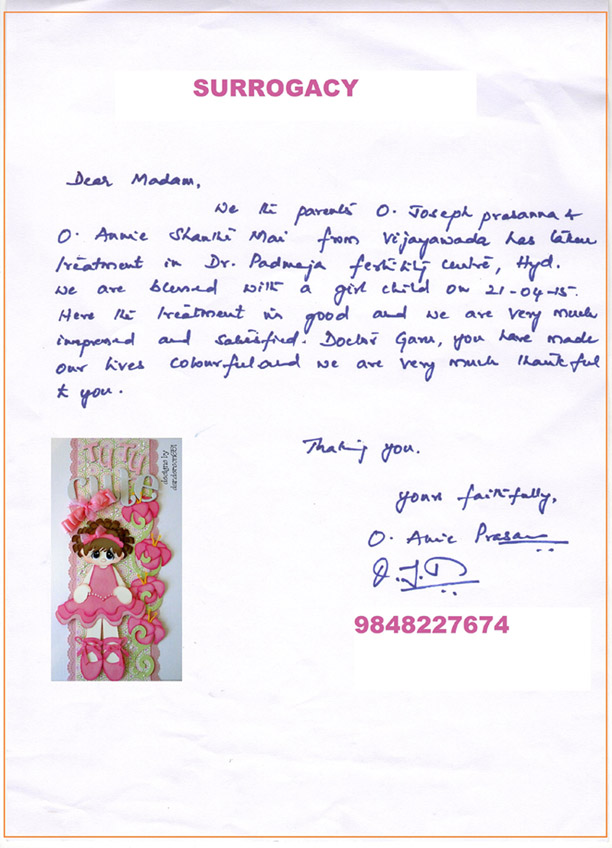 SURROGACY
Dear Madam,
We the parents O. Joseph prasanna &
O. Annie Shanthi Mai from Vijayawada has taken
treatment in Dr. Padmaja fertility centre, Hyd.
We are blessed with a girl child on 21-04-15.
Here the treatment is good and we are very much
impressed and satisfied. Doctor Garu, you have made
our lives colourful and we are very much thankful
to you.
Thaking you.
yours faithfully,
O. Anie Prasan
9848227674
CUTE
designs by